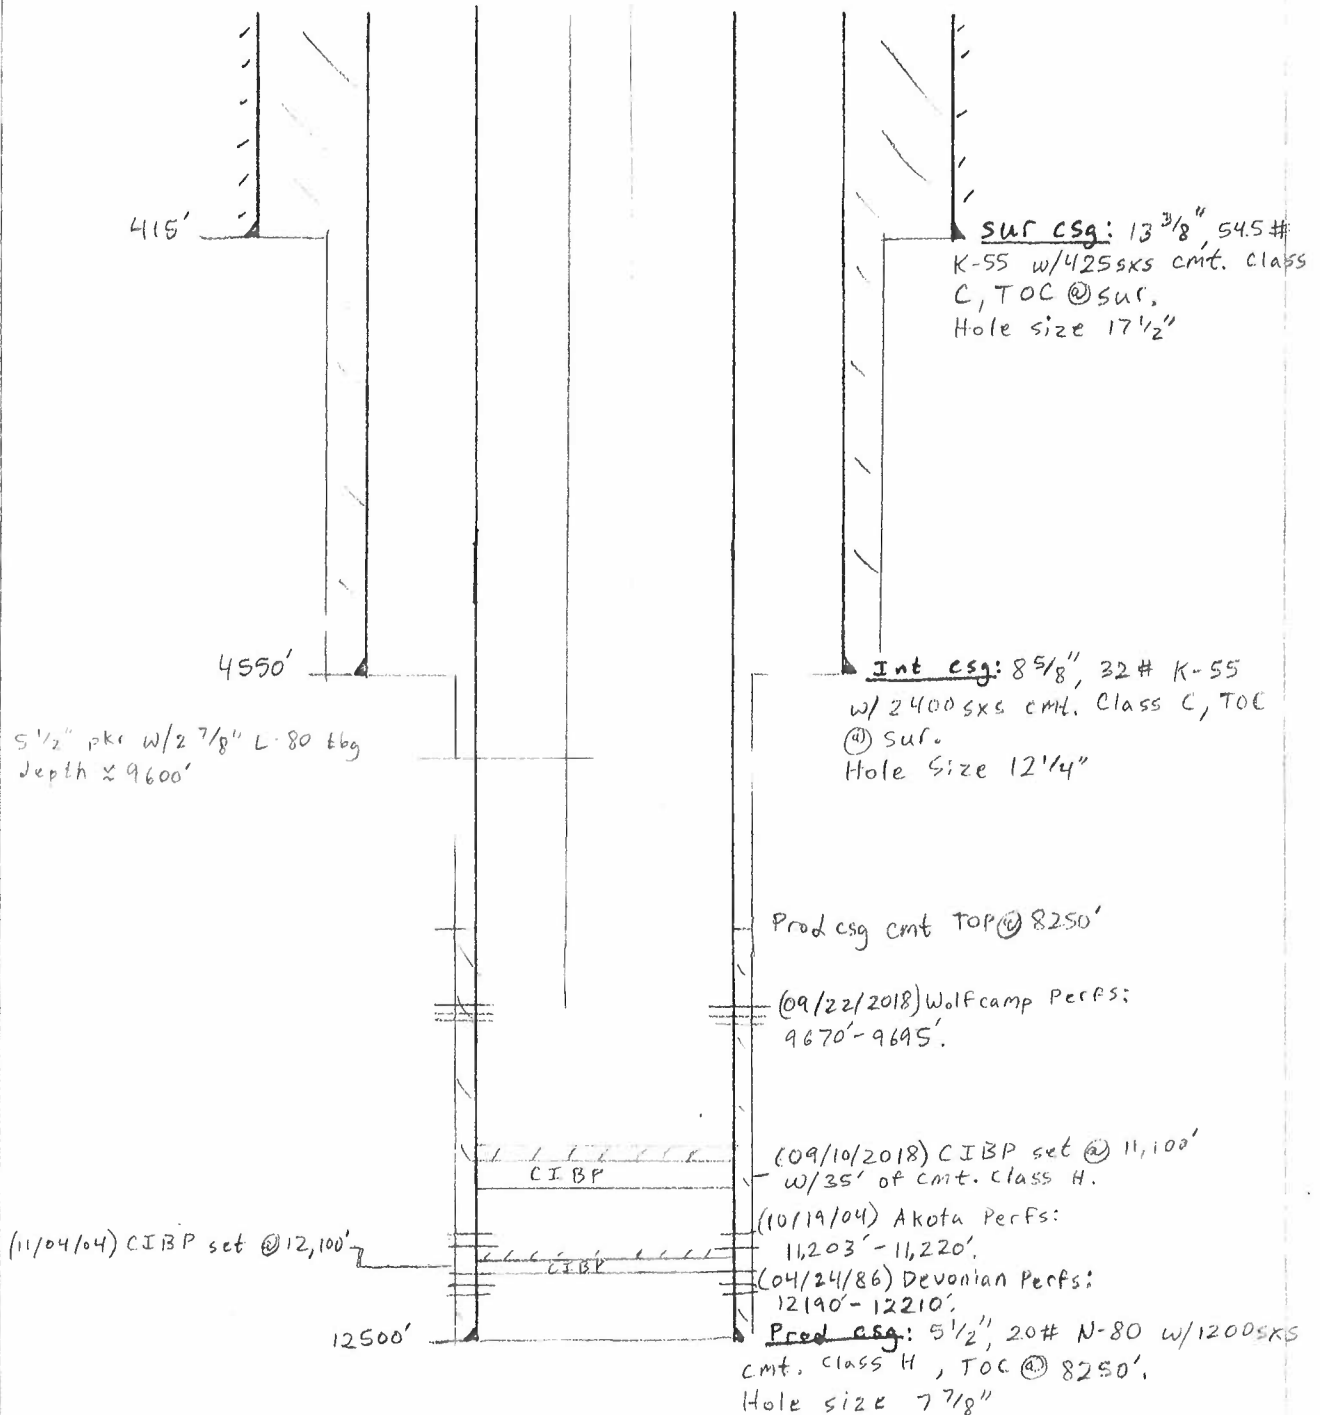 415'
sur csg: 13 3/8", 54.5#
K-55 w/425sxs cmt. class
C, TOC @ sur.
Hole size 17 1/2"
4550'
Int csg: 8 5/8", 32# K-55
w/ 2400 sxs cmt. Class C, TOC
@ sur.
Hole Size 12 1/4"
5 1/2" pkr w/2 7/8" L-80 tbg
depth ≈ 9600'
Prod csg cmt TOP @ 8250'
(09/22/2018) Wolfcamp Perfs:
9670'-9695'.
(09/10/2018) CIBP set @ 11,100'
w/35' of cmt. Class H.
CIBP
(10/19/04) Akota Perfs:
11,203'-11,220'.
(11/04/04) CIBP set @ 12,100'
CIBP
(04/24/86) Devonian Perfs:
12190'-12210'.
12500'
Prod csg: 5 1/2", 20# N-80 w/1200sxs
cmt. Class H, TOC @ 8250'.
Hole size 7 7/8"